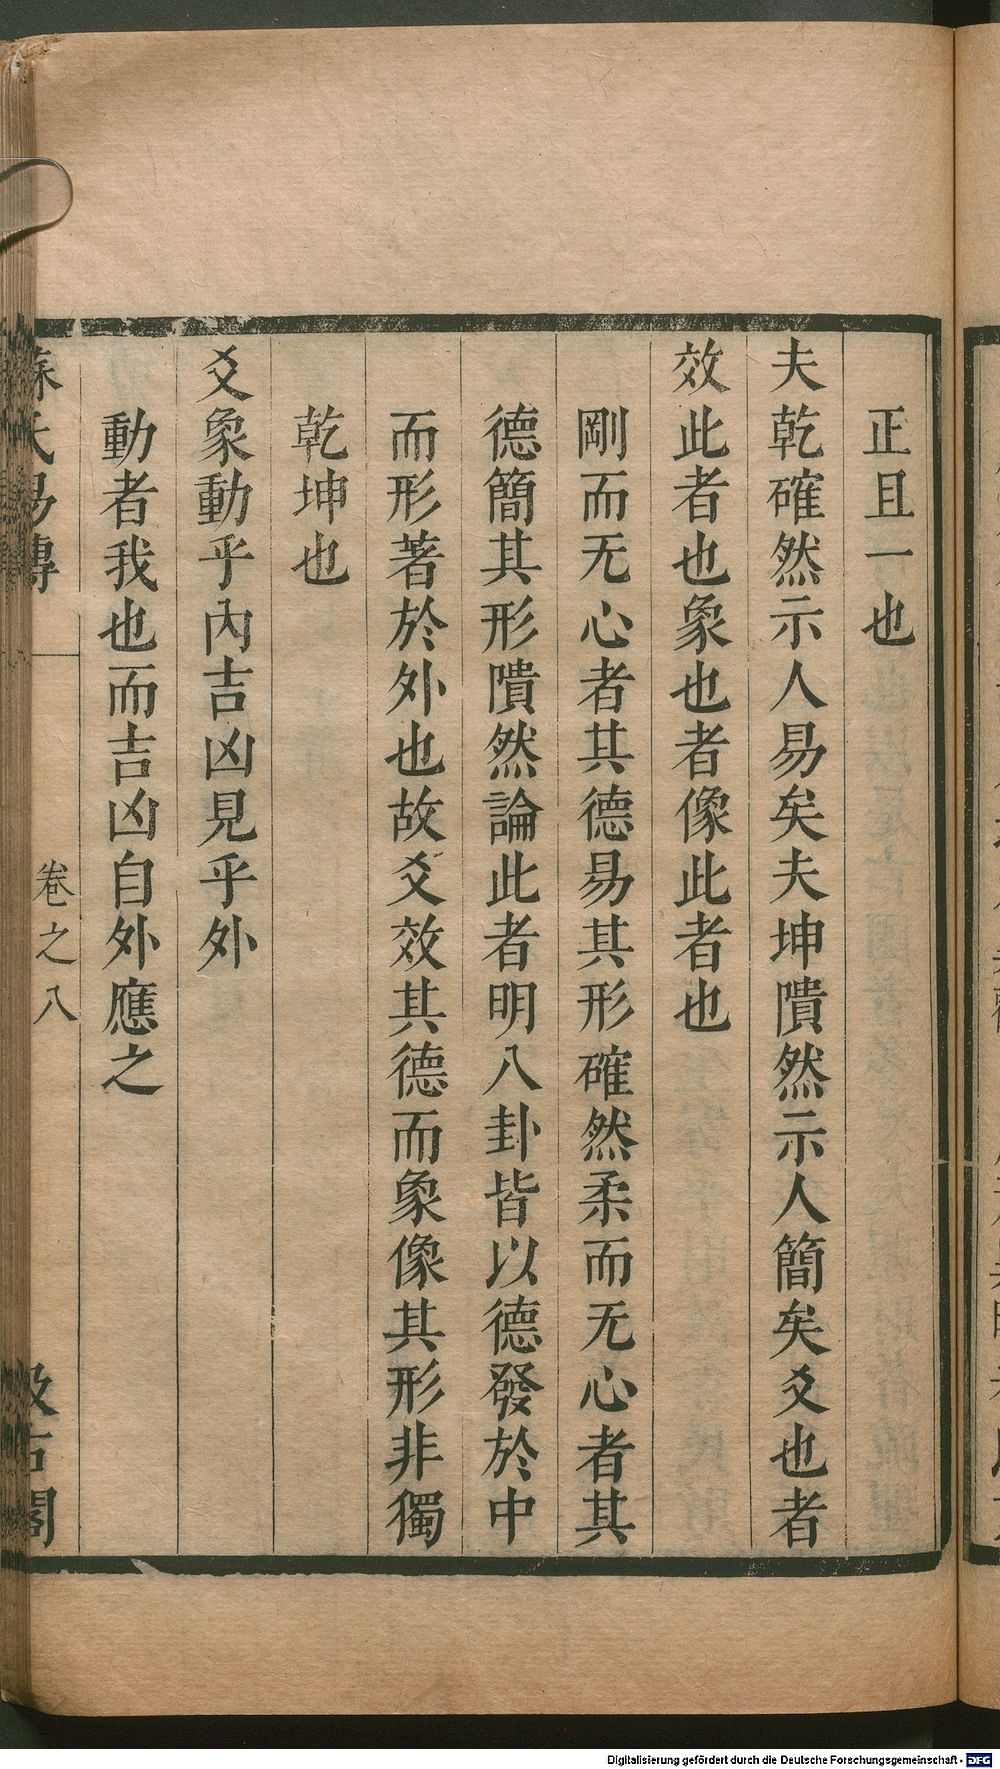 正且一也
夫乾確然示人易矣夫坤隤然示人簡矣爻也者
效此者也象也者像此者也
剛而无心者其德易其形確然柔而无心者其
德簡其形隤然論此者明八卦皆以德發於中
而形著於外也故爻效其德而象像其形非獨
乾坤也
爻象動乎內吉凶見乎外
動者我也而吉凶自外應之
蘇氏易傳 卷之八 汲古閣
Digitalisierung gefördert durch die Deutsche Forschungsgemeinschaft - DFG